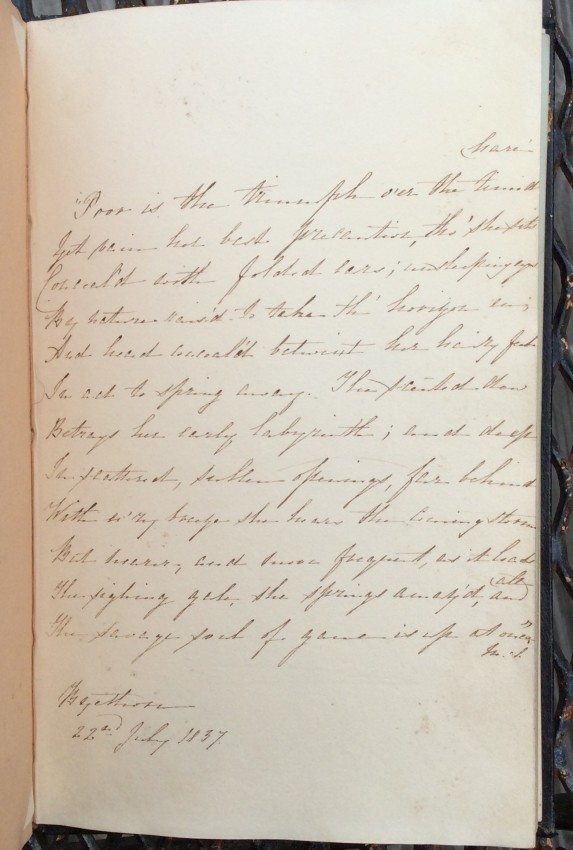 hare
"Poor is the triumph o'er the timid
Yet vain her best precaution, tho' she sits
Conceal'd with folded ears; unsleeping eyes
By nature rais'd to take th' horizon in;
And head conceal'd betwixt her hairy feet
In act to spring away. The scented dew
Betrays her early labyrinth; and deep
In scattered, sullen openings, far behind
With ev'ry breeze she hears the coming storm
But nearer, and more frequent, as it loads
The sighing gale, she springs amaz'd, and all
The savage soul of game is up at once."
22nd July 1837.